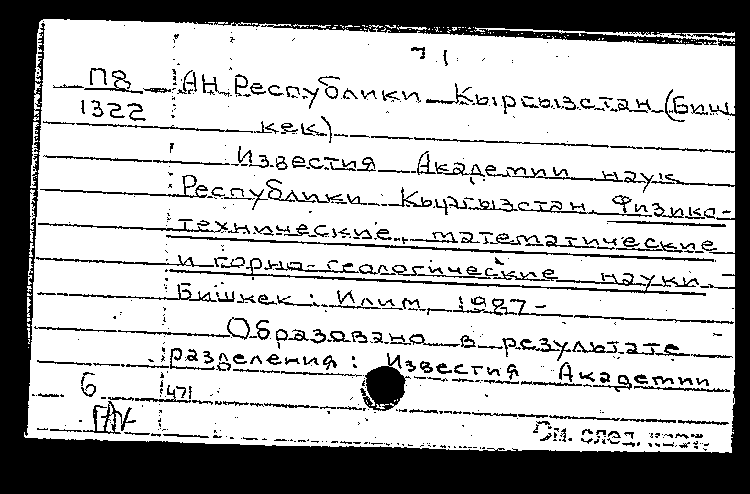 71
П8 АН Республики Кыргызстан (Биш
1322 кек)
Известия Академии наук
Республики Кыргызстан. Физико-
технические, математические
и горно-геологические науки.
Бишкек: Илим, 1987-
Образовано в результате
разделения: Известия Академии
6 471
См. след. карт.